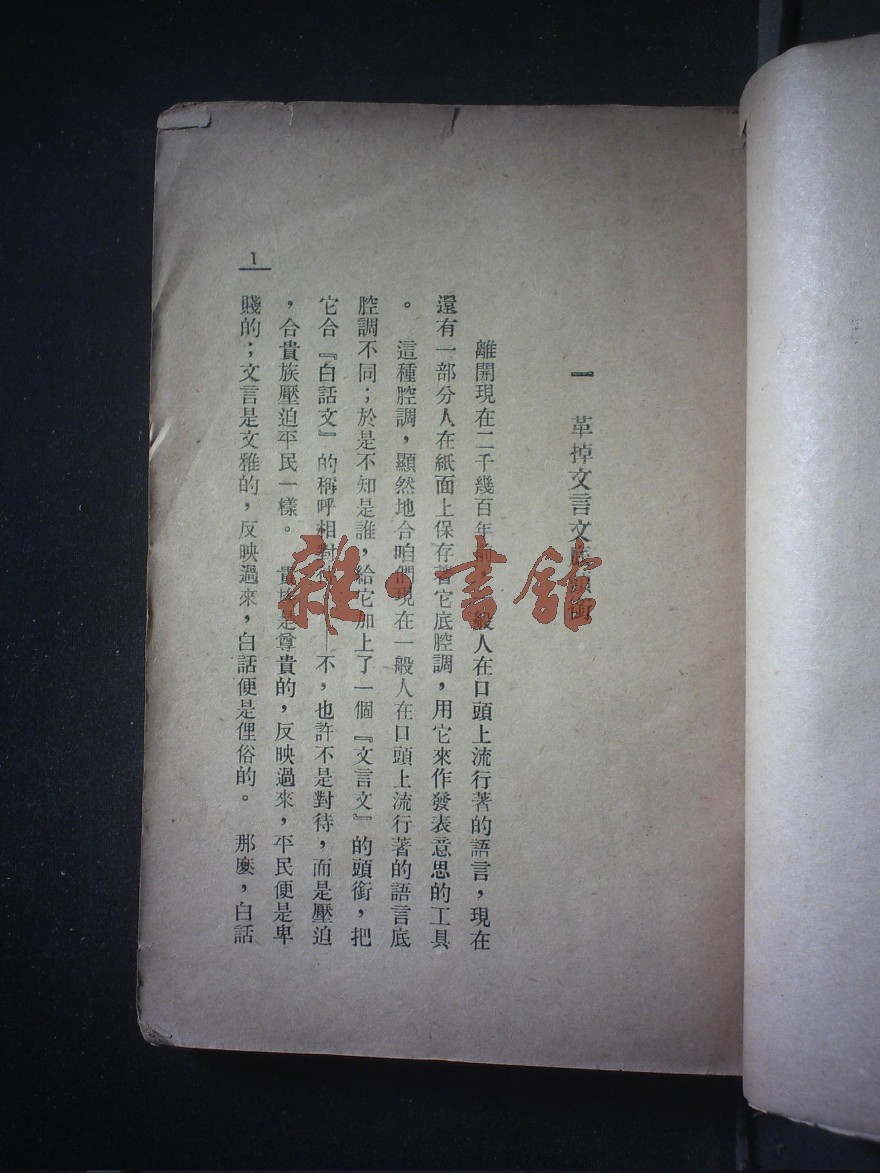 一 革掉文言文底頭銜
離開現在二千幾百年前,一般人在口頭上流行著的語言,現在
還有一部分人在紙面上保存著它底腔調,用它來作發表意思的工具
。 這種腔調,顯然地合咱們現在一般人在口頭上流行著的語言底
腔調不同;於是不知是誰,給它加上了一個『文言文』的頭銜,把
它合『白話文』的稱呼相對待——不,也許不是對待,而是壓迫
,合貴族壓迫平民一樣。 貴族是尊貴的,反映過來,平民便是卑
賤的;文言是文雅的,反映過來,白話便是俚俗的。 那麼,白話
1
雜·書館